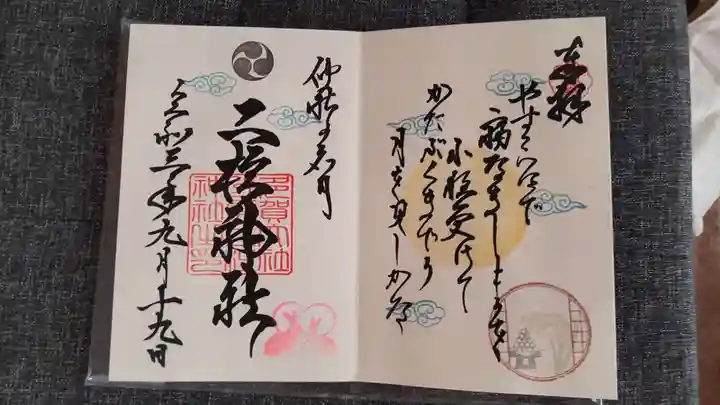 奉拝
やすらはで
寝なましものを
小夜更けて
かたぶくまでの
月を見しかな
仲秋の名月
二柱神社
令和三年九月十九日